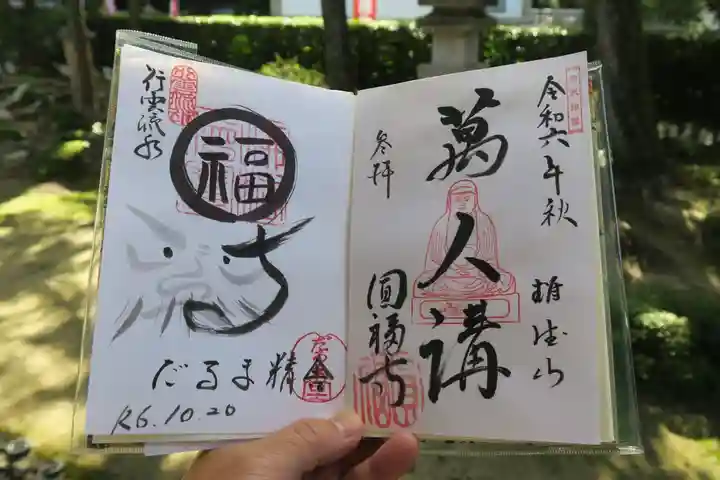 令和六年秋
雄徳山
萬人講
参拝
圓福寺
行雲流水
福
だるま精舎
R6.10.20